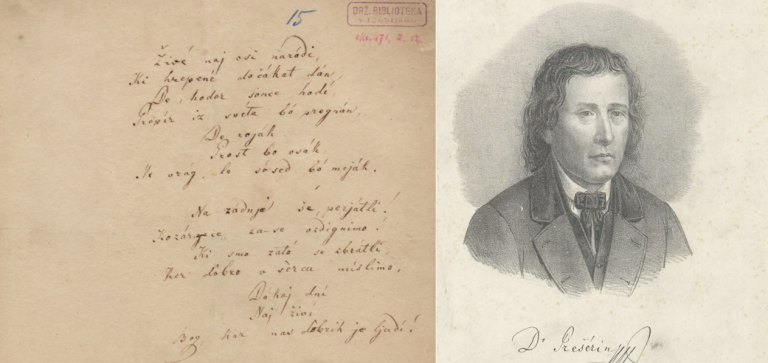 15
DRŽ. BIBLIOTEKA
V LJUBLJANI
Živé naj vsi naródi,
Ki hrepené dočákat dán,
De, koder sonce hodi,
Prepír iz svéta bó pregnán,
De roják
Prost bo vsák,
Ne vrag, le sósed bó meják.
Na zadnje še, perjátli!
Kozárce za-se vzdignimo!
Ki smo zató se zbrátli,
Ker dobro v sercu mislimo,
Dókaj dni
Naj živí
Bog, kar nas dobrih je ljudí!
Dr Prešérin